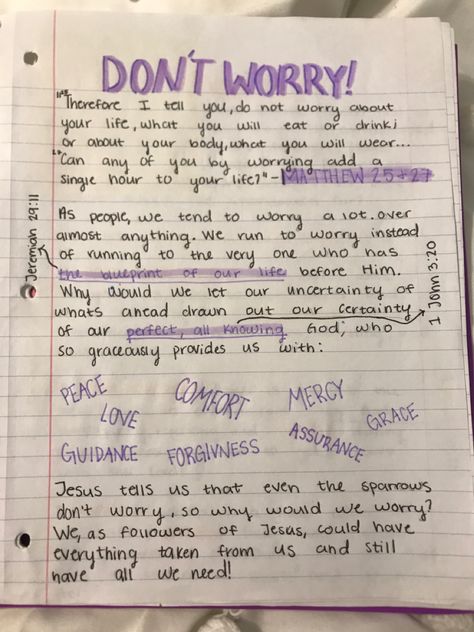 DON'T WORRY!
"Therefore I tell you, do not worry about
your life, what you will eat or drink;
or about your body, what you will wear...
"Can any of you by worrying add a
single hour to your life?" - MATTHEW 25+27
As people, we tend to worry a lot. over
almost anything. We run to worry instead
of running to the very one who has
the blueprint of our life before Him.
Why would we let our uncertainty of
whats ahead drawn out our certainty
of our perfect, all knowing God, who
so graceously provides us with:
Jeremiah 29:11
1 John 3:20
PEACE
LOVE
COMFORT
MERCY
GRACE
GUIDANCE
FORGIVNESS
ASSURANCE
Jesus tells us that even the sparrows
don't worry, so why would we worry?
We, as followers of Jesus, could have
everything taken from us and still
have all we need!